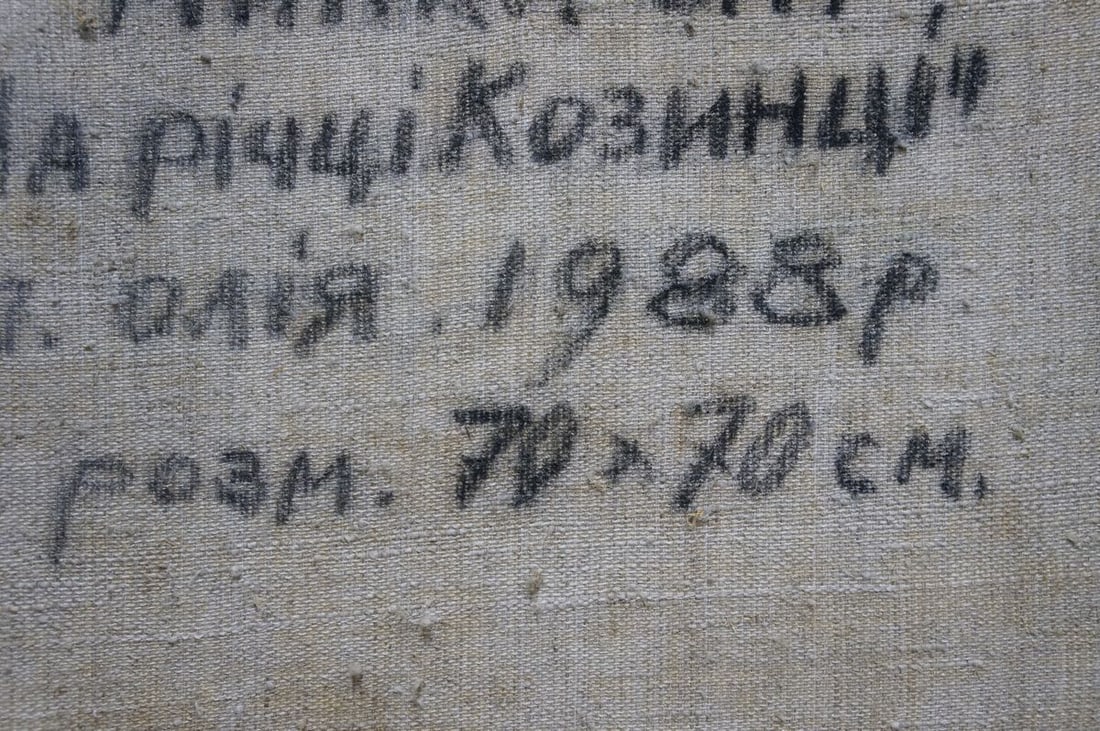 на річці Козинці"
т. олія. 1988 р
розм. 70 х 70 см.